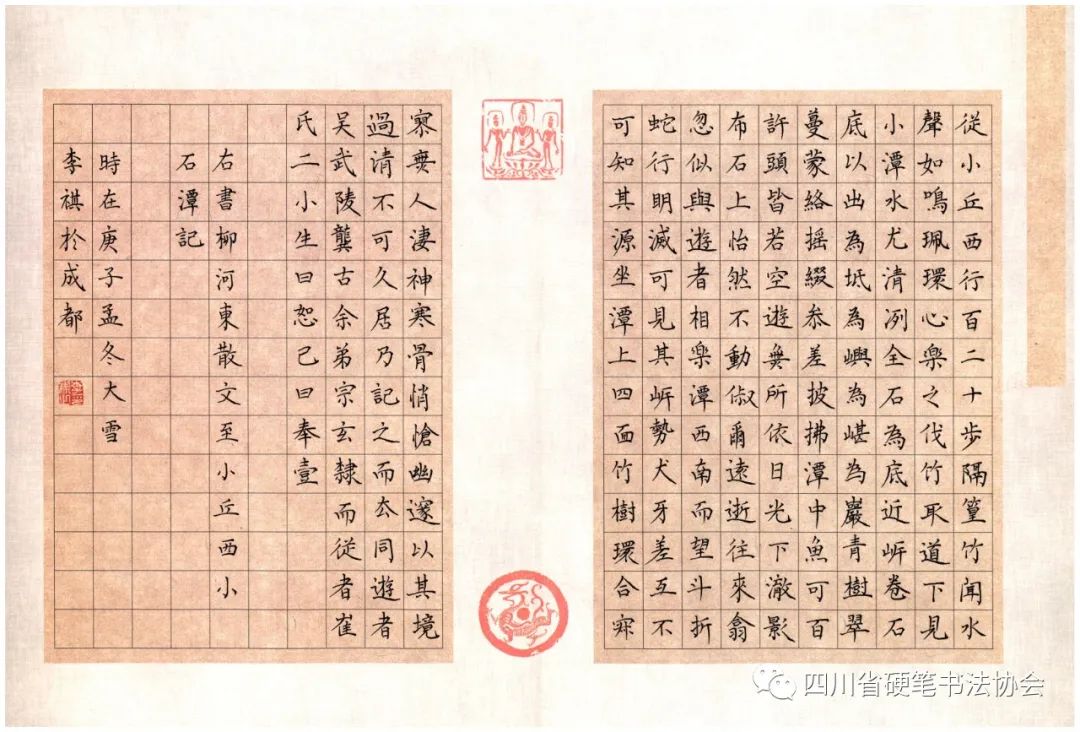 從小丘西行百二十步隔篁竹聞水
聲如鳴珮環心樂之伐竹取道下見
小潭水尤清冽全石為底近岸卷石
底以出為坻為嶼為嵁為巖青樹翠
蔓蒙絡摇綴叅差披拂潭中魚可百
許頭皆若空遊無所依日光下澈影
布石上怡然不動俶爾遠逝往來翕
忽似與遊者相樂潭西南而望斗折
蛇行明滅可見其岸勢犬牙差互不
可知其源坐潭上四面竹樹環合寂
寥無人淒神寒骨悄愴幽邃以其境
過清不可久居乃記之而去同遊者
吴武陵龔古余弟宗玄隸而從者崔
氏二小生曰恕己曰奉壹
右書柳河東散文至小丘西小
石潭記
時在庚子孟冬大雪
李祺於成都
四川省硬笔书法协会